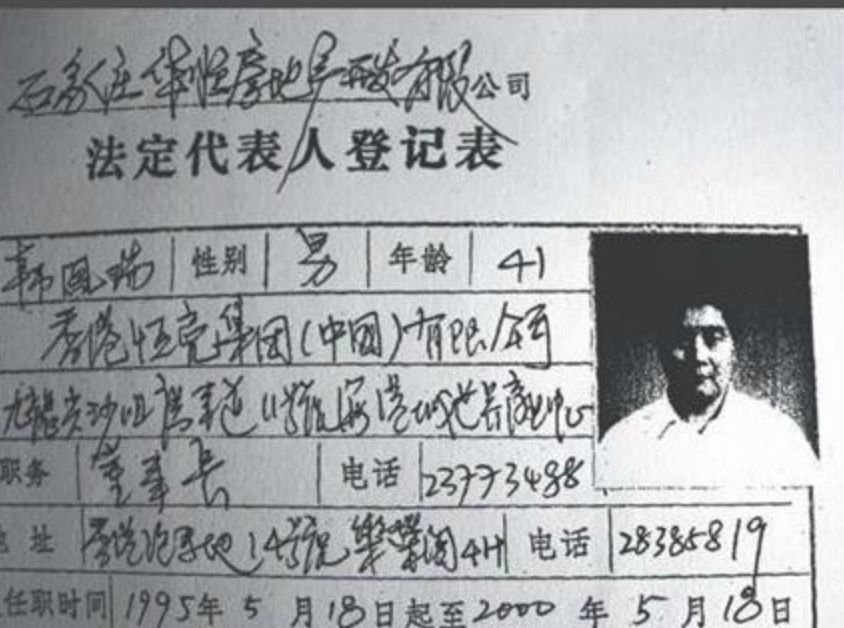 石家庄华恒房地产开发有限公司
法定代表人登记表
韩 性别 男 年龄 41
香港恒亮集团(中国)有限公司
九龍尖沙咀廣東道11號海港城世界商業中心
职务 董事长 电话 23773488
址 香港跑马地14號樂榮閣4H 电话 28385819
任职时间 1995年5月18日起至2000年5月18日